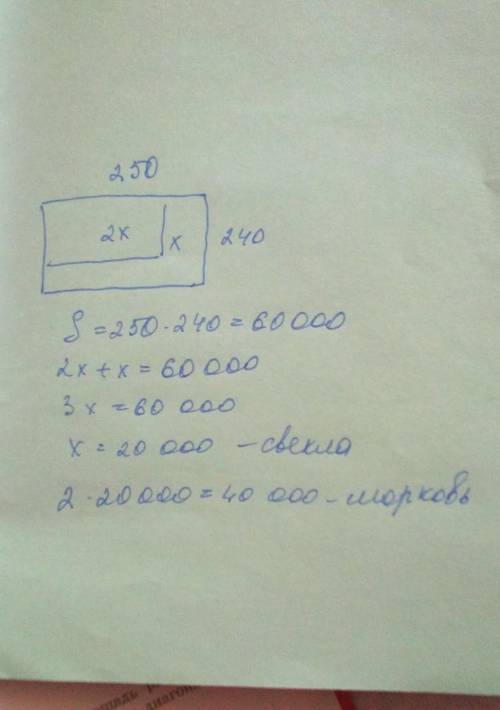 250
2x
x
240
S = 250 · 240 = 60 000
2x + x = 60 000
3x = 60 000
x = 20 000 - свекла
2 · 20 000 = 40 000 - морковь
диагон